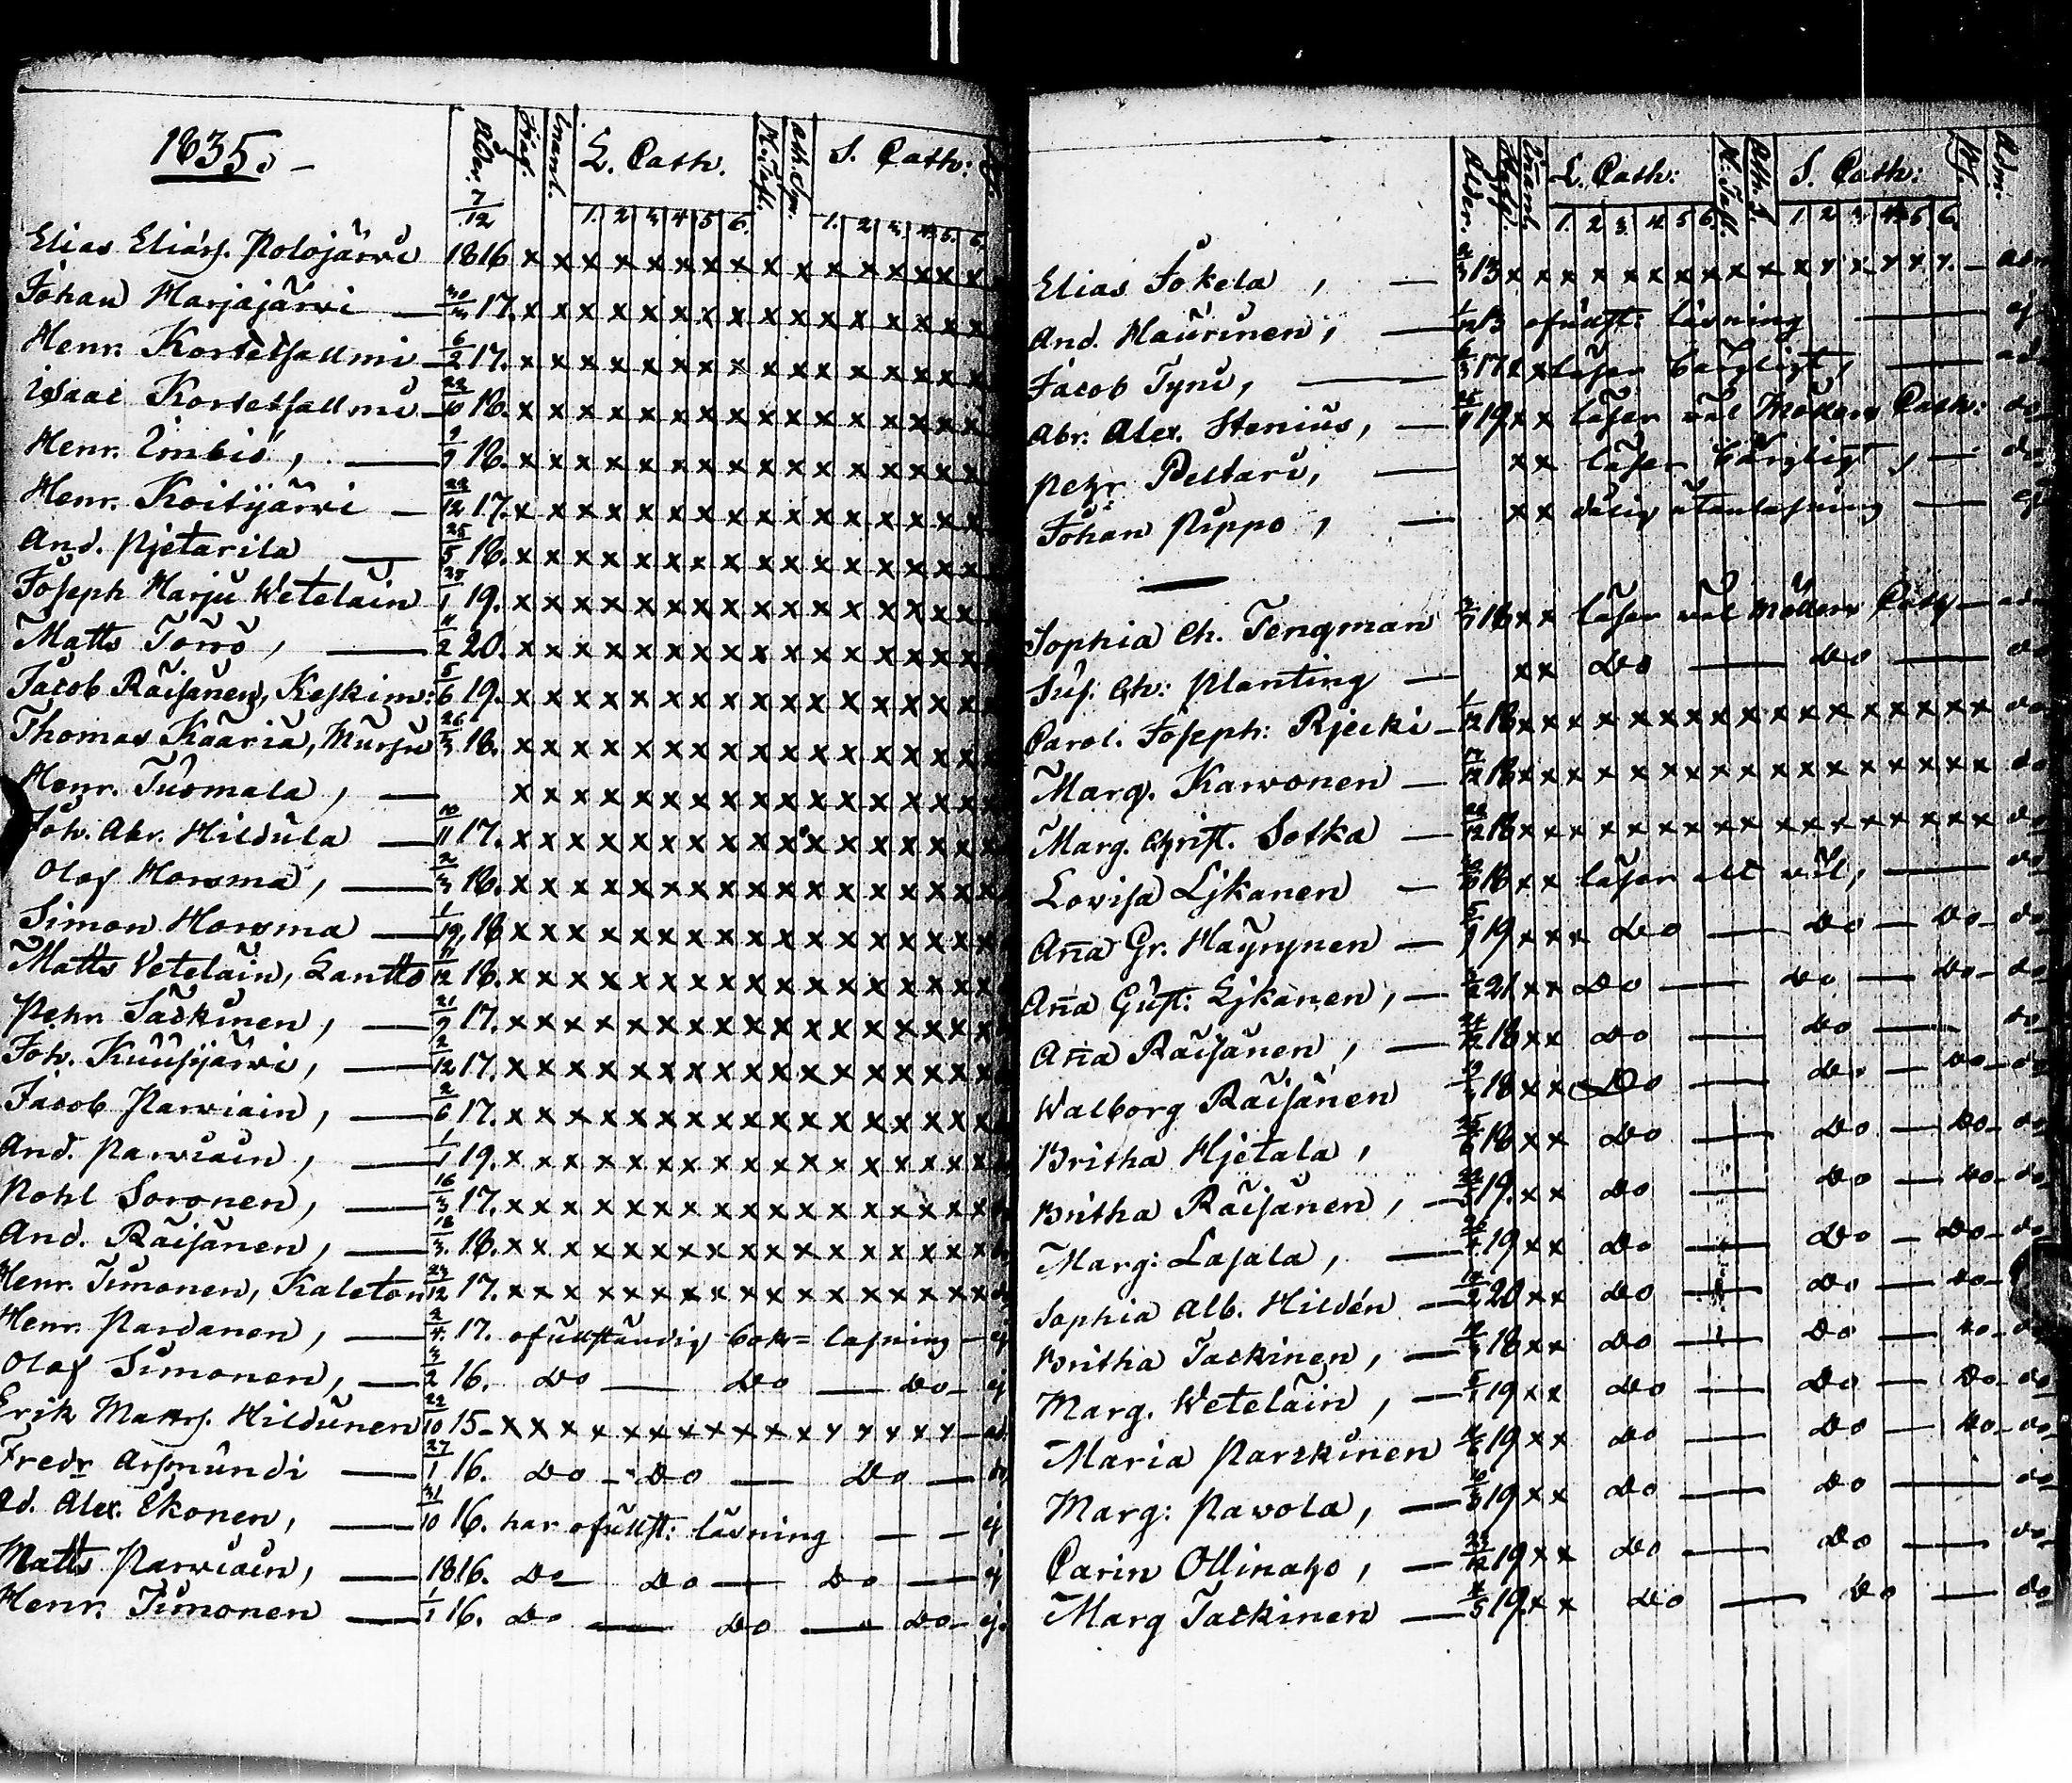 1835.
Ålder. L. Cath. S. Cath:
1. 2 3 4 5 6. 1. 2. 3. 4. 5. 6.
Elias Eliass. Polojärvi 7/12 1816 x x x x x x x x x x x x x x x x
Johan Harjajärvi — 17. x x x x x x x x x x x x x x x x
Henr. Kortetsallmi — 6/2 17. x x x x x x x x x x x x x x x x
isaac Kortetsallmi — 22/10 18. x x x x x x x x x x x x x x x x
Henr. Imbis, — 18. x x x x x x x x x x x x x x x x
Henr. Koitijärvi — 23/12 17. x x x x x x x x x x x x x x x x
And. Pjetarila — 25/5 18. x x x x x x x x x x x x x x x x
Joseph Harju Wetelain 25/1 19. x x x x x x x x x x x x x x x x
Matts Torro, — 11/2 20. x x x x x x x x x x x x x x x x
Jacob Räisänen, Keskim: 5/6 19. x x x x x x x x x x x x x x x x
Thomas Kääriä, Mursu 26/3 18. x x x x x x x x x x x x x x x x
Henr. Tuomala, — x x x x x x x x x x x x x x x x
Joh. Abr. Hildula — 10/11 17. x x x x x x x x x x x x x x x x
Olof Horsma, — 2/3 18. x x x x x x x x x x x x x x x x
Simon Horsma — 18 x x x x x x x x x x x x x x x x
Matts Vetelain, Lantto 11/12 18. x x x x x x x x x x x x x x x x
Pehr Säckinen, — 21/9 17. x x x x x x x x x x x x x x x x
Joh. Kuusijärvi, — 2/12 17. x x x x x x x x x x x x x x x x
Jacob Parviain, — 2/6 17. x x x x x x x x x x x x x x x x
And. Parviain, — 1/1 19. x x x x x x x x x x x x x x x x
Pohl Soronen, — 16/3 17. x x x x x x x x x x x x x x x x
And. Räisänen, — 18/3 18. x x x x x x x x x x x x x x x x
Henr. Timonen, Kaleton 23/12 17. x x x x x x x x x x x x x x x x
Henr. Pardanen, — 2/4 17. ofullständig bok= läsning — ej
Olof Simonen, — 3/2 16. do — do — do — ej
Erik Matts. Hildunen 22/10 15 — x x x x x x x x x x x x x x x x — ad
Fredr Asmundi — 27/1 16. do — do — do —
Ad. Alex. Ekonen, — 31/10 16. har ofullst: läsning — — ej
Matts Parviain, — 1816. do — do — do — ej
Henr. Timonen — 1/1 16. do — do — do — ej.
Ålder. L. Cath: S. Cath: Adm.
1. 2 3 4 5 6. 1 2 3. 4 5. 6.
Elias Jokela, — 13 x x x x x x x x x x x x x x x x — adm
And. Haurinen, — 1/12 13 ofullst: läsning — ej
Jacob Tyni, — 17 x x läser bärgligt, — ad
Abr. Alex. Stenius, — 19 x x läser väl Möllers Cath: do
Pehr Peltari, — x x läser bärgligt, — do
Johan Pippo, — x x dålig utanläsning — ej
—
Sophia Ch. Tengman 18 x x läser väl Möllers Cath — adm
Sus. Ch: Planting — x x do — do — do
Carol. Joseph: Rjecki — 1/12 18 x x x x x x x x x x x x x x x x do
Marg. Karvonen — 18 x x x x x x x x x x x x x x x x do
Marg. Christ. Sotka — 18 x x x x x x x x x x x x x x x x do
Lovisa Ljkanen — 18 x x läser alt väl, — do
Aña Gr. Häyrynen — 19 x x x do — do — do — do
Aña Gust: Ljkanen, — 21 x x do — do — do — do
Aña Räisänen, — 18 x x do — do — do
Walborg Räisänen 18 x x Do — do — do — do
Britha Hjetala, 18 x x do — do — do — do
Britha Räisänen, — 19. x x do — do — do — do
Marg: Lasala, — 19 x x do — do — do — do
Sophia Alb. Hildén — 20 x x do — do — do —
Britha Tackinen, — 18 x x do — do — do — do
Marg. Wetelain, — 19 x x do — do — do — do
Maria Parckinen 19 x x do — do — do — do
Marg: Pavola, — 19 x x do — do — do
Carin Ollinaho, — 23/12 19 x x do — do — do
Marg Tackinen — 19. x x do — do — do